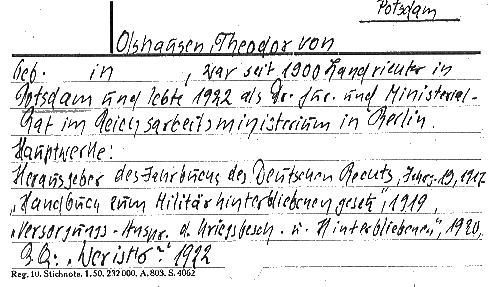 Potsdam
Olshausen, Theodor von
Geb. in , war seit 1900 Landrichter in
Potsdam und lebte 1922 als Dr. jur. und Ministerial-
Rat im Reichsarbeitsministerium in Berlin.
Hauptwerke:
Herausgeber des Jahrbuchs des Deutschen Rechts, Jahrg. 13, 1917
„Handbuch zum Militärhinterbliebenengesetz", 1919,
„Versorgungs-Anspr. d. Kriegsbesch. u. Hinterbliebenen", 1920,
„Wer ist's?" 1922
Reg. 10. Stichnote. 1. 50. 232 000. A. 803. S. 4062